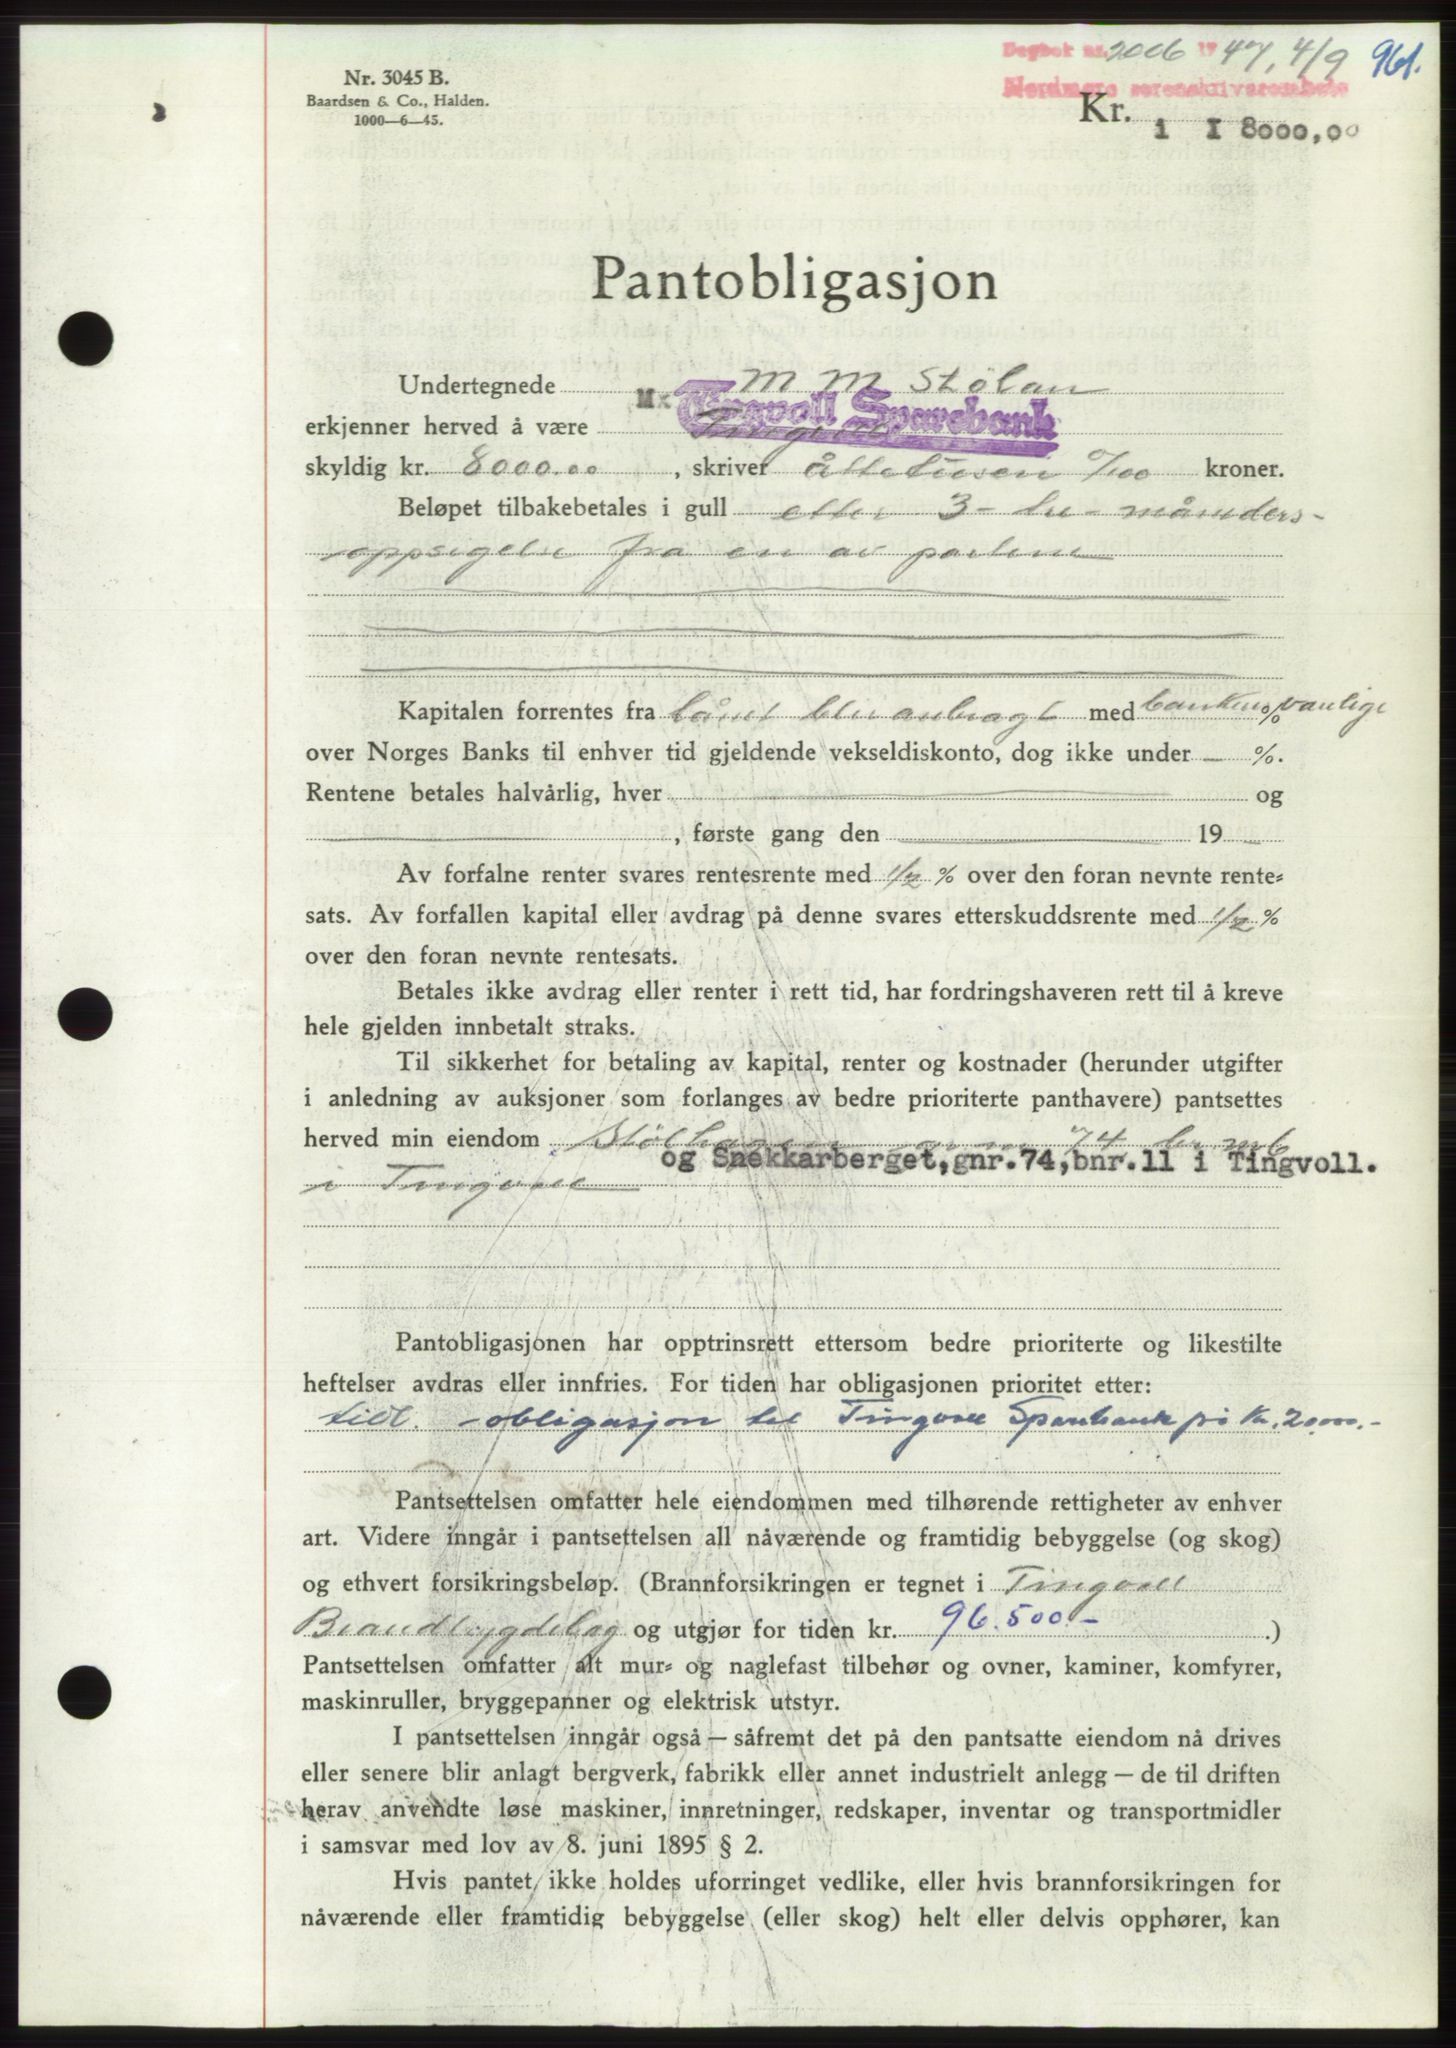 Dagbok nr. 2006 1947, 4/9 961.
Nordmøre sorenskriverembete
Nr. 3045 B.
Baardsen & Co., Halden.
1000—6—45.
Kr. 8000,00
Pantobligasjon
Undertegnede M M Stölan
erkjenner herved å være Tingvoll Sparebank
skyldig kr. 8000.00, skriver åttetusen 0/100 kroner.
Beløpet tilbakebetales i gull etter 3 - tre - måneders-
oppsigelse fra en av partene
Kapitalen forrentes fra lånet blir anbragt med bankens % vanlige
over Norges Banks til enhver tid gjeldende vekseldiskonto, dog ikke under — %.
Rentene betales halvårlig, hver og
, første gang den 19
Av forfalne renter svares rentesrente med 1/2 % over den foran nevnte rente=
sats. Av forfallen kapital eller avdrag på denne svares etterskuddsrente med 1/2 %
over den foran nevnte rentesats.
Betales ikke avdrag eller renter i rett tid, har fordringshaveren rett til å kreve
hele gjelden innbetalt straks.
Til sikkerhet for betaling av kapital, renter og kostnader (herunder utgifter
i anledning av auksjoner som forlanges av bedre prioriterte panthavere) pantsettes
herved min eiendom Stölhagen 74 br n 6
og Snekkarberget, gnr. 74, bnr. 11 i Tingvoll.
i Tingvoll
Pantobligasjonen har opptrinsrett ettersom bedre prioriterte og likestilte
heftelser avdras eller innfries. For tiden har obligasjonen prioritet etter:
obligasjon til Tingvoll Sparebank på kr. 20,000.-
Pantsettelsen omfatter hele eiendommen med tilhørende rettigheter av enhver
art. Videre inngår i pantsettelsen all nåværende og framtidig bebyggelse (og skog)
og ethvert forsikringsbeløp. (Brannforsikringen er tegnet i Tingvoll
Brandbygdelag og utgjør for tiden kr. 96.500.- .)
Pantsettelsen omfatter alt mur= og naglefast tilbehør og ovner, kaminer, komfyrer,
maskinruller, bryggepanner og elektrisk utstyr.
I pantsettelsen inngår også — såfremt det på den pantsatte eiendom nå drives
eller senere blir anlagt bergverk, fabrikk eller annet industrielt anlegg — de til driften
herav anvendte løse maskiner, innretninger, redskaper, inventar og transportmidler
i samsvar med lov av 8. juni 1895 § 2.
Hvis pantet ikke holdes uforringet vedlike, eller hvis brannforsikringen for
nåværende eller framtidig bebyggelse (eller skog) helt eller delvis opphører, kan